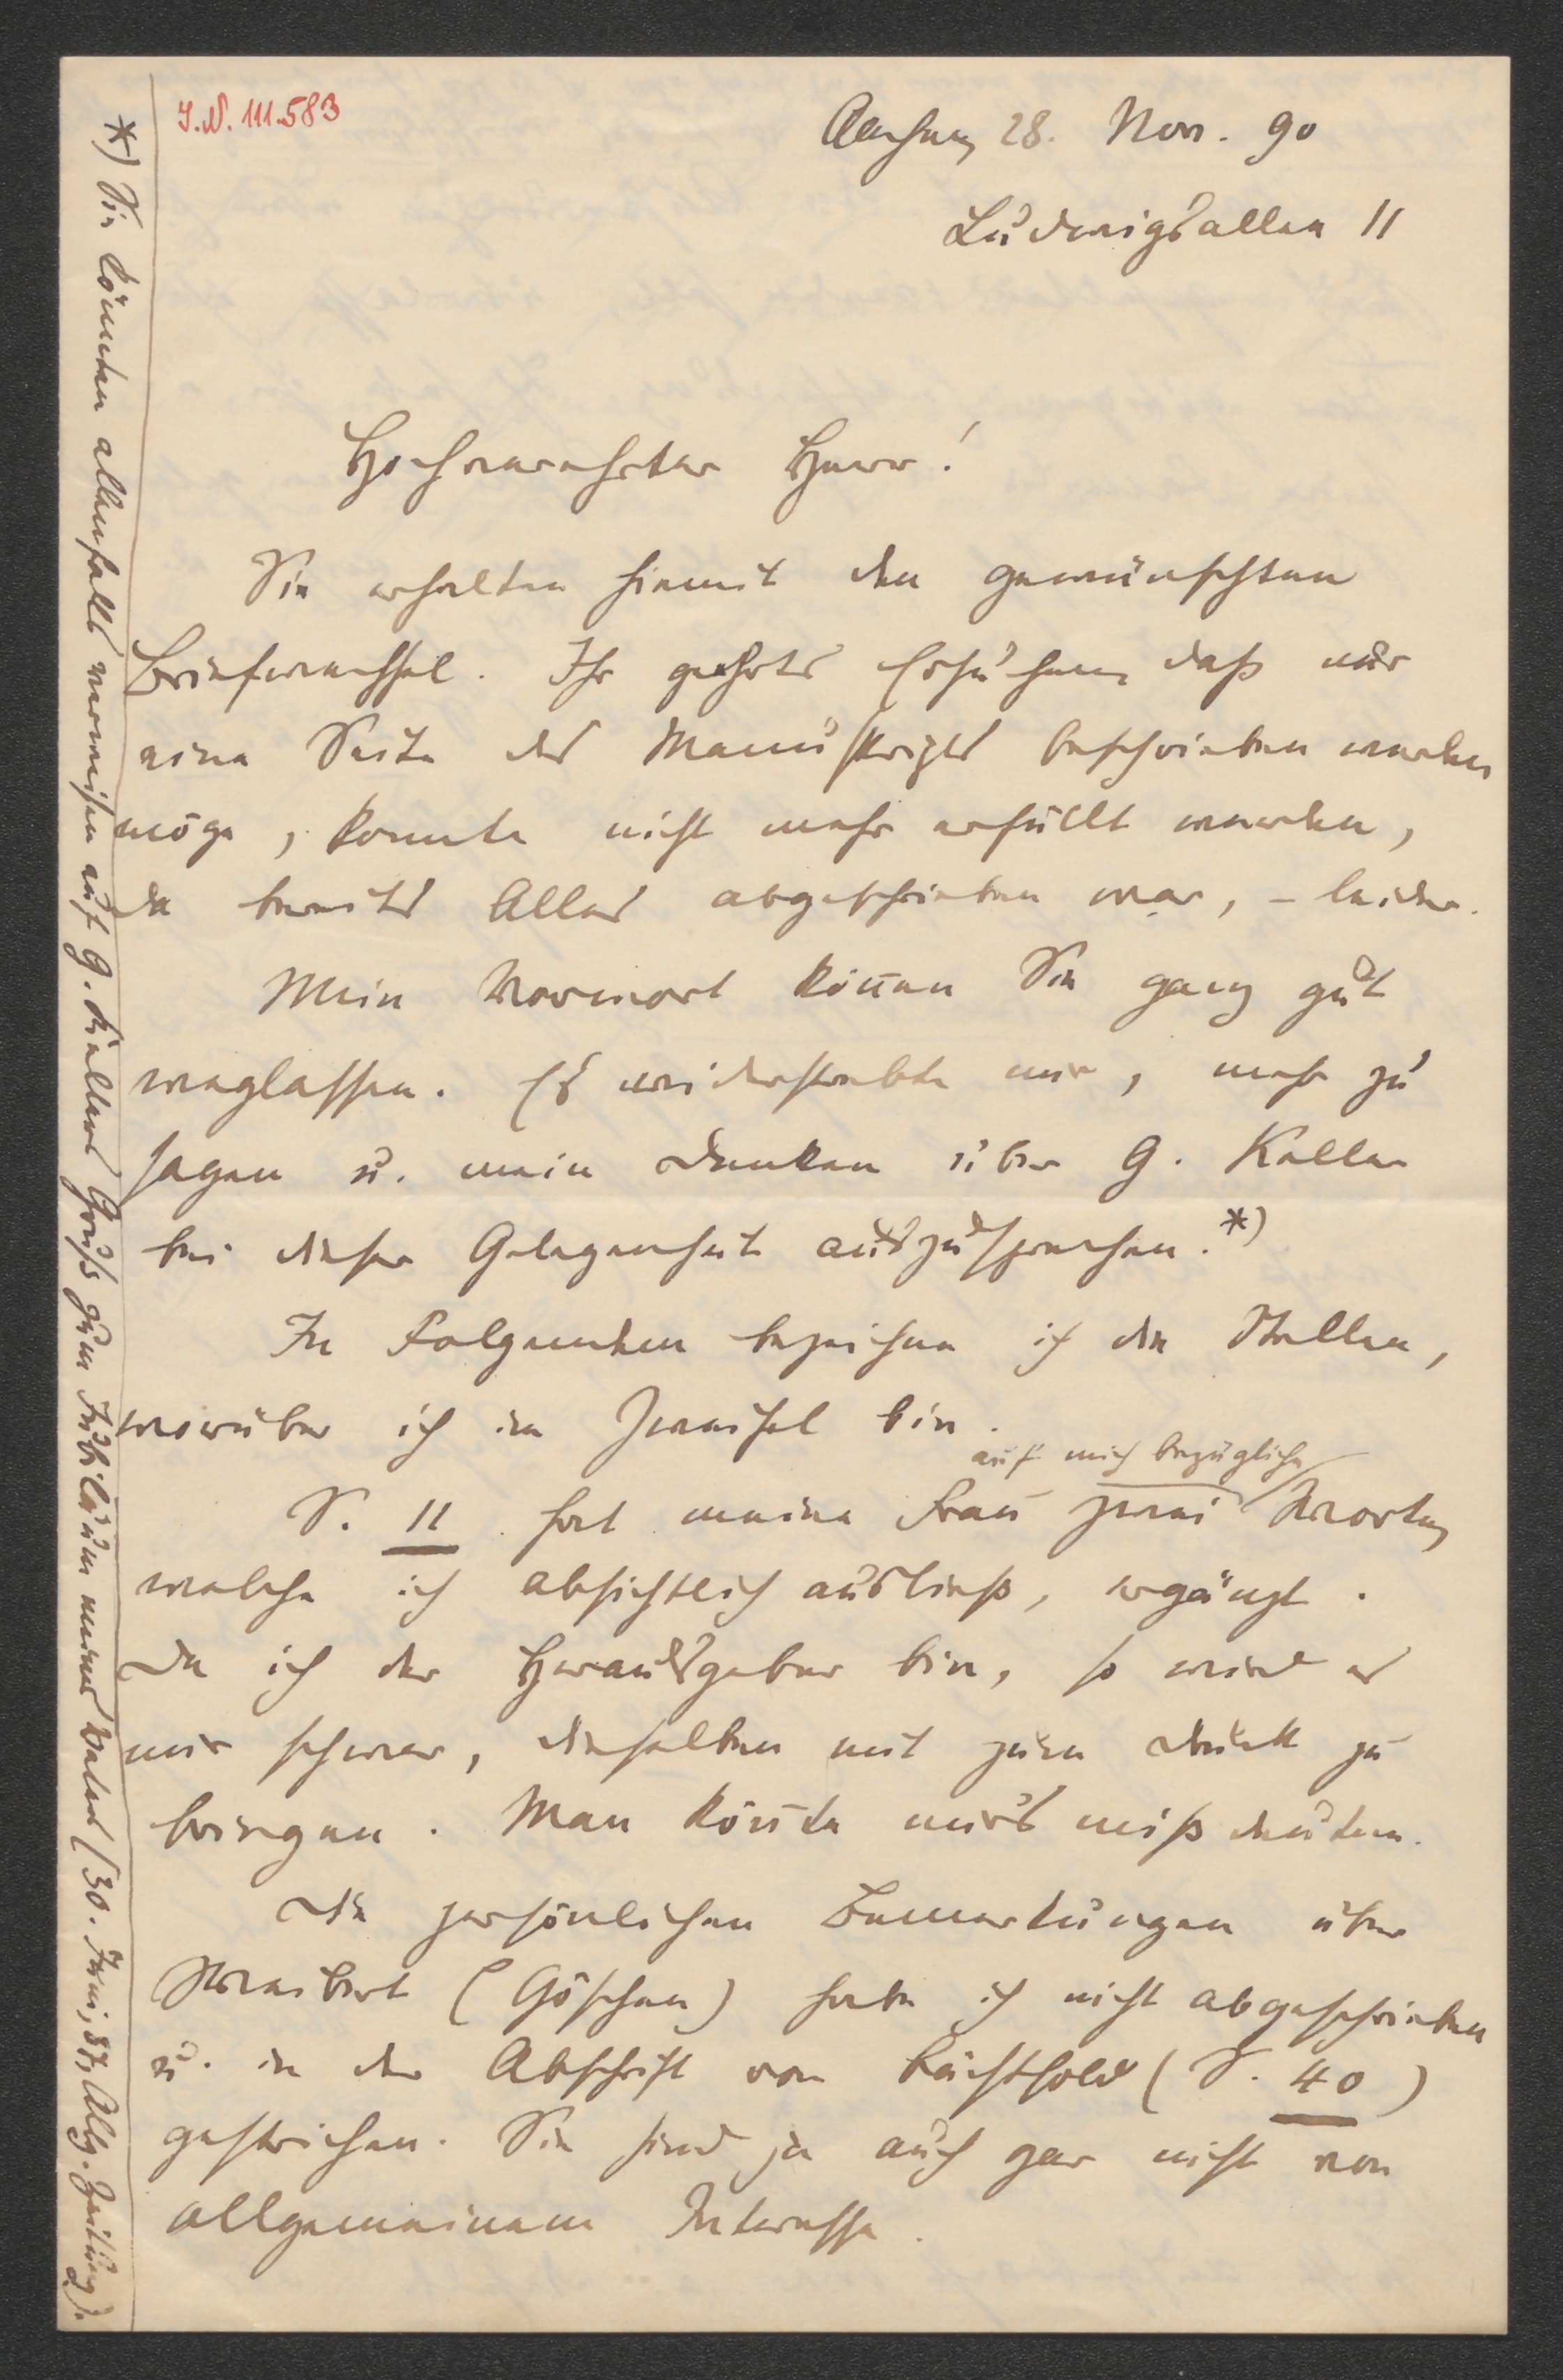 J.N. 111.583
Aachen, 28. Nov. 90
Ludwigsallee 11
Hochverehrter Herr!
Sie erhalten hiemit den gewünschten
Briefwechsel. Ihr geehrtes Ersuchen, daß nur
eine Seite des Manuskripts beschrieben werden
möge, konnte nicht mehr erfüllt werden,
da bereits Alles abgeschrieben war, – leider.
Mein Vorwort können Sie ganz gut
weglassen. Es widerstrebte mir, mehr zu
sagen u. mein Denken über G. Keller
bei dieser Gelegenheit auszusprechen.*)
Im Folgenden bezeichne ich die Stellen,
worüber ich im Zweifel bin.
auf mich bezügliche
S. 11 hat meine Frau zwei Worte,
welche ich absichtlich ausließ, ergänzt.
Da ich der Herausgeber bin, so wird es
mir schwer, dieselben mit zum Druck zu
bringen. Man könnte mir's mißdeuten.
Die persönlichen Bemerkungen über
Weibert (Göschen) habe ich nicht abgeschrieben
u. in der Abschrift von Bächthold (S. 40)
gestrichen. Sie sind ja auch gar nicht von
allgemeinem Interesse.
*) Sie könnten allenfalls verweisen auf G. Kellers Gruß zum Jubiläum meines Vaters (30. Juni, 87, Allg. Zeitung).